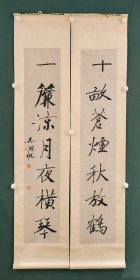 十畝蒼煙秋放鶴
一簾涼月夜横琴